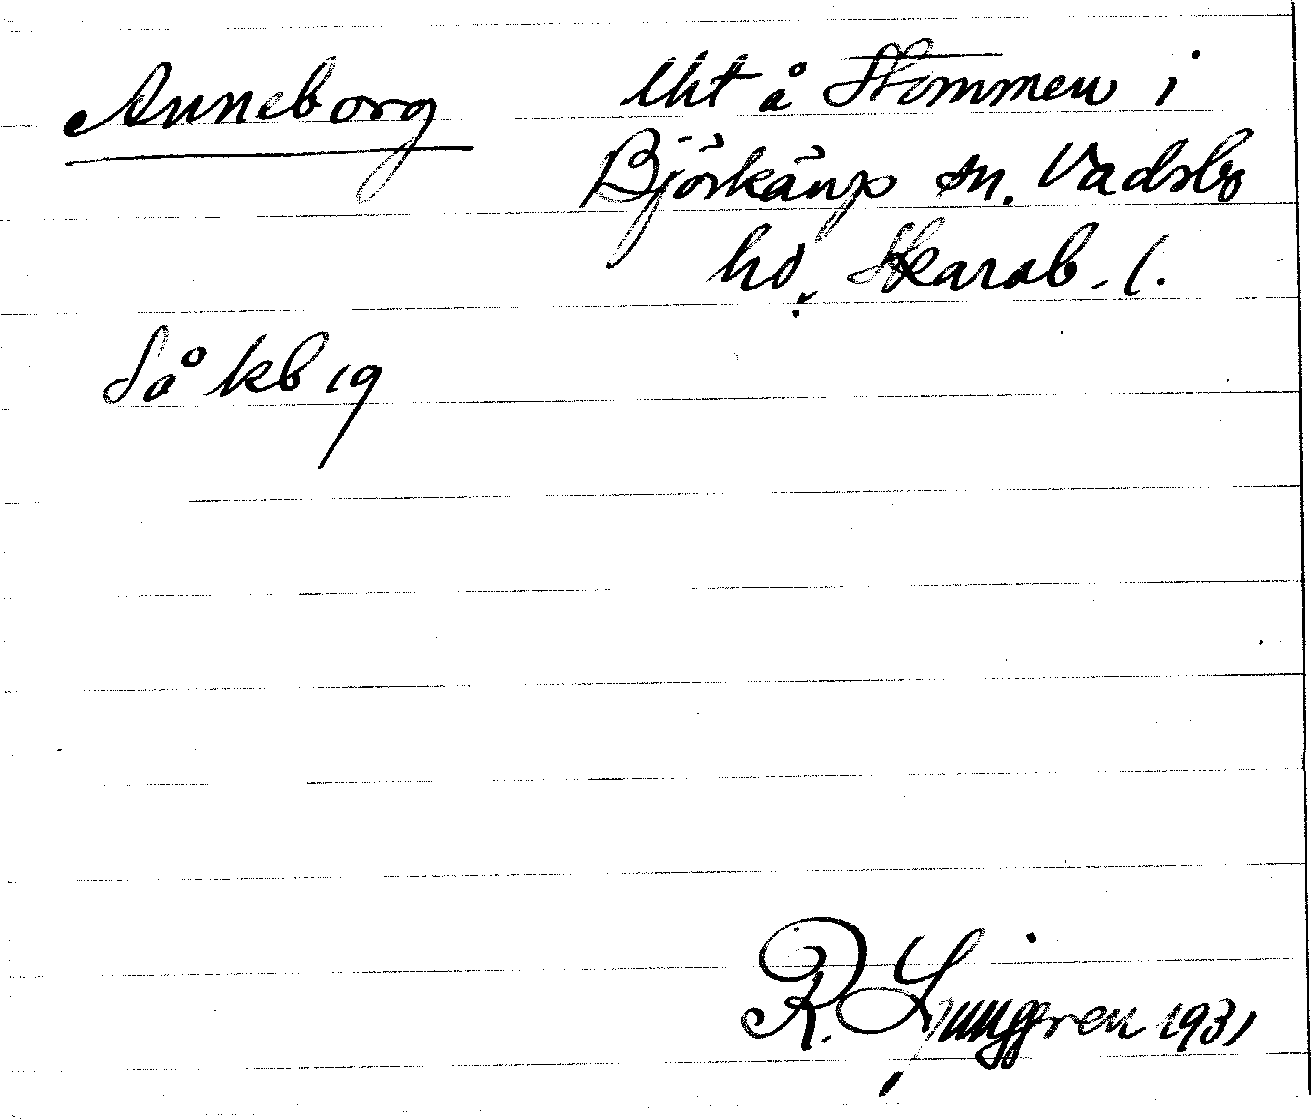 Anneborg
Uht å Stommen i
Björkäng sn. Vadsbo
hd. Skarab. l.
Så kb 19
R. Ljunggren 1931